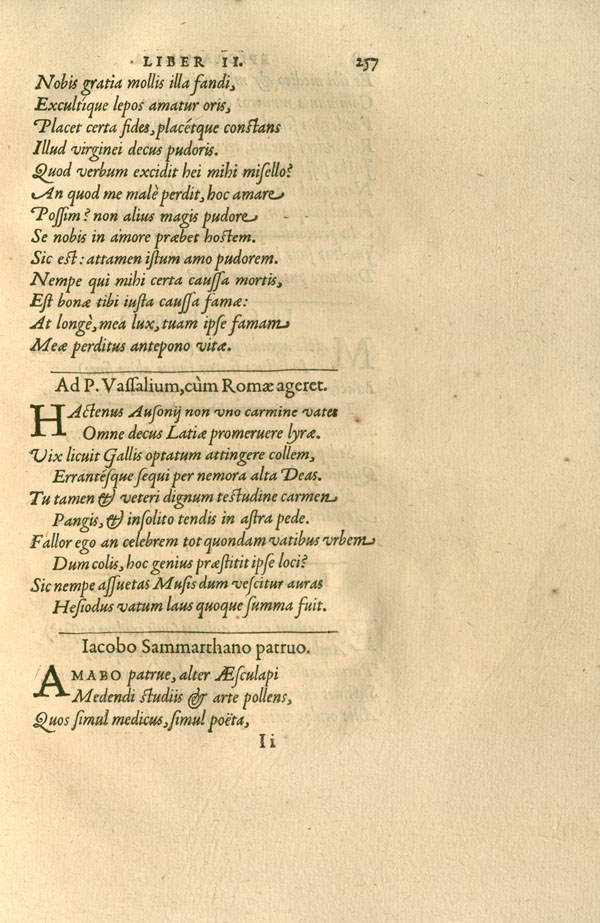 LIBER II. 257
Nobis gratia mollis illa fandi,
Excultique lepos amatur oris,
Placet certa fides, placétque constans
Illud virginei decus pudoris.
Quod verbum excidit hei mihi misello?
An quod me malè perdit, hoc amare
Possim? non alius magis pudore
Se nobis in amore præbet hostem.
Sic est: attamen istum amo pudorem.
Nempe qui mihi certa caussa mortis,
Est bonæ tibi iusta caussa famæ:
At longè, mea lux, tuam ipse famam
Meæ perditus antepono vitæ.
Ad P. Vassalium, cùm Romæ ageret.
HActenus Ausonij non vno carmine vates
Omne decus Latiæ promeruere lyræ.
Vix licuit Gallis optatum attingere collem,
Errantésque sequi per nemora alta Deas.
Tu tamen & veteri dignum testudine carmen
Pangis, & insolito tendis in astra pede.
Fallor ego an celebrem tot quondam vatibus vrbem
Dum colis, hoc genius præstitit ipse loci?
Sic nempe assuetas Musis dum vescitur auras
Hesiodus vatum laus quoque summa fuit.
Iacobo Sammarthano patruo.
AMABO patrue, alter Æsculapi
Medendi studiis & arte pollens,
Quos simul medicus, simul poëta,
Ii